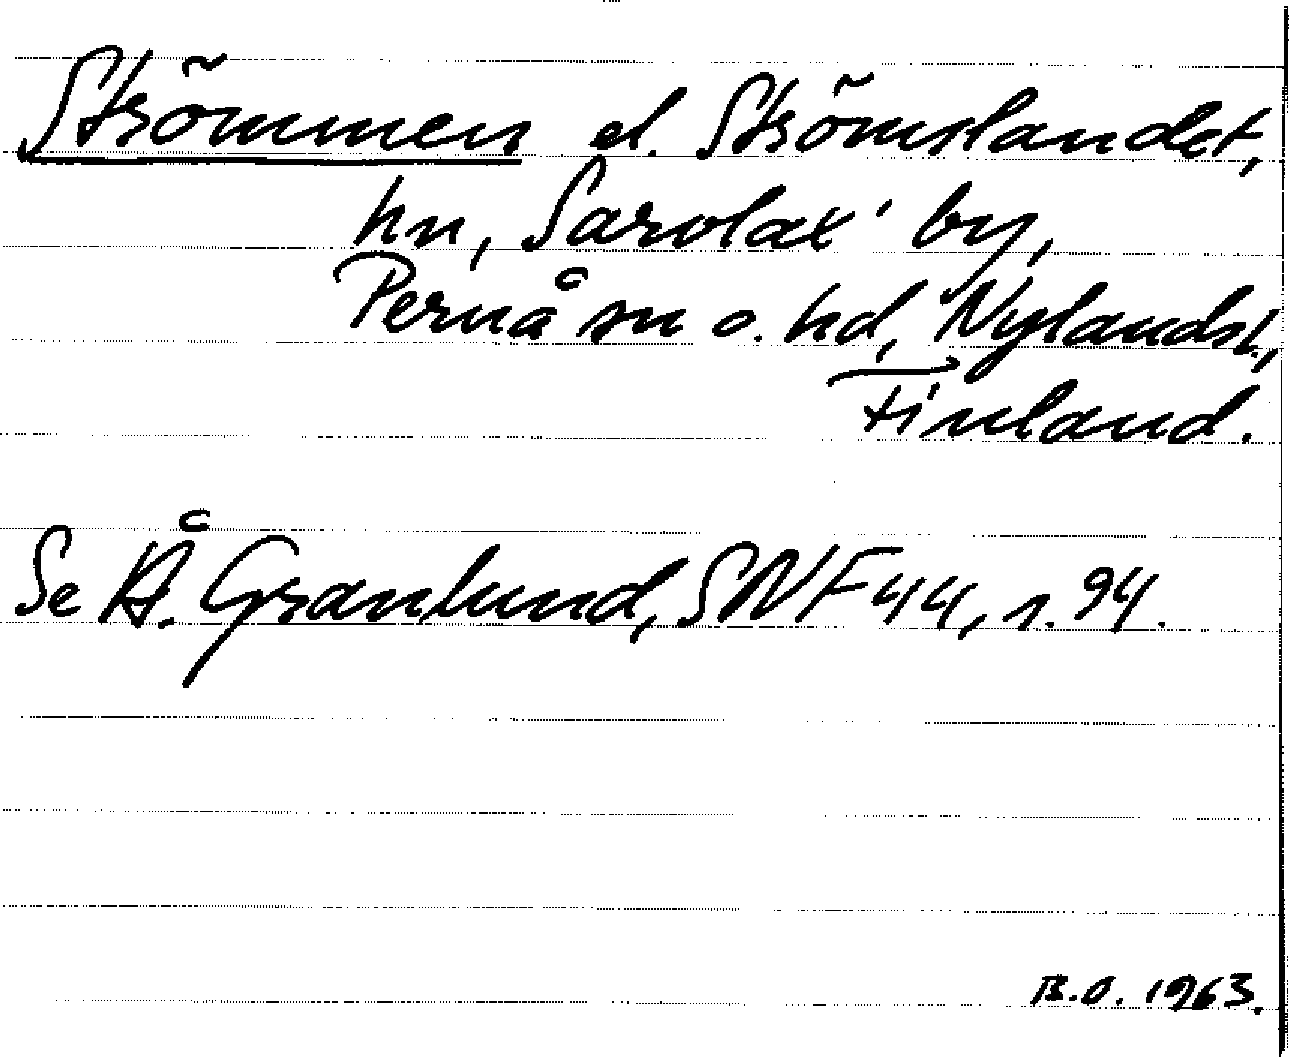 Strömmen el. Strömslandet,
hn, Sarvlax' by,
Pernå sn o. hd, Nylandsl.,
Finland.
Se Å. Granlund, SNF 44, s. 94.
B.O. 1963.